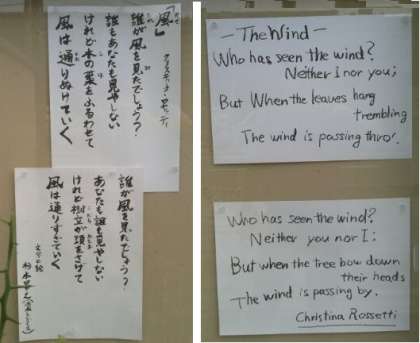 「風」
クリスティナ・ロセッティ
誰が風を見たでしょう?
誰もあなたも見やしない
けれど木の葉をふるわせて
風は通りぬけていく
誰が風を見たでしょう?
あなたも誰も見やしない
けれど樹立が頭をさげて
風は通りすぎていく
— The Wind —
Who has seen the wind?
Neither I nor you;
But When the leaves hang
trembling
The wind is passing thro'.
Who has seen the wind?
Neither you nor I:
But when the tree bow down
their heads
The wind is passing by.
Christina Rossetti